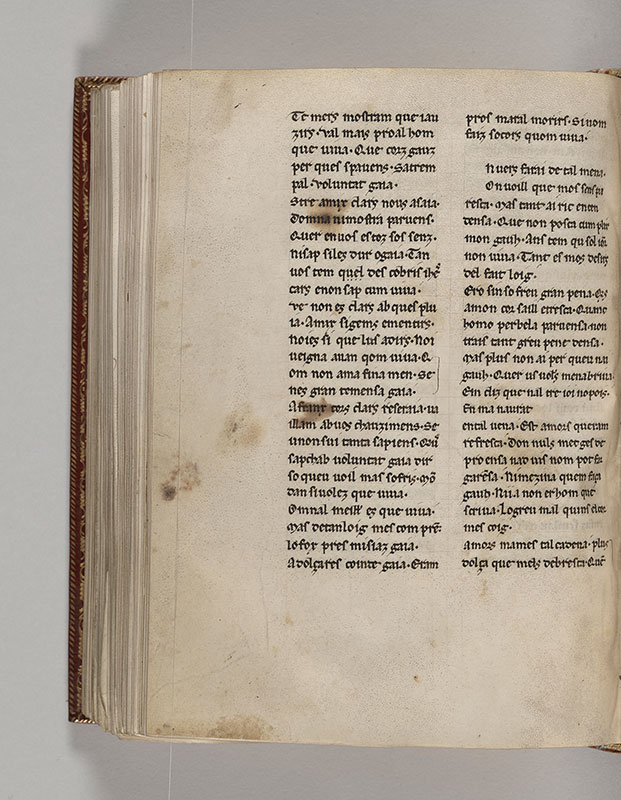 Te mers mostram que iau
zirs. Val mais pro al hom
que uiua. Que corz gauz
per ques spauens. Sa trem
pal. voluntat gaia.
Sire amix clars nous asaia.
Domna ni mostra paruens.
Quer en uos estoz sos senz.
ni sap si les dur o gaia. Tan
uos tem quel des cobris
cars e non sap cum uiua.
ve non es clars ab ques plu
ia. Amix si gems
noies si que lus auirs. Non
ueigna auan qom uiua. Q
om non ama fina men. Se
nes gran temensa gaia.
A franx cors clars reseraia. ua
illam ab uos chauzimens. Se
u non sui tanta sapiens. Qui
sap chab uoluntat gaia dir
so queu uoil mas sofris.
dan si uolez que uiua.
Om nal meill es que uiua.
Mas de tan loig mes com
lo fox pres mi siaz gaia.
A dolz a res cointe gaia. Eram
pros mi tal morirs. Si uom
faiz socors quom uiua.
Nuers farai de tal mena.
On uoill que mos sens
resta. Mas tant ai ric enten
densa. Que non posca
mon gauh. Ans tem qu sol
non uiua. Tant es mos desirs
del fait loig.
Ero sin sofreu gran pena.
a mon cor saill e resta. Quant
homo per bela paruensa non
trais tant greu pene densa.
Mas plus non ai per queu
gauh. Quer us uols menabriua
Em diz que nal tre ioi no
En ma naurat
en tal uena. Est amors queram
refresca. Don nuls metges de
proensa nao uis nom pot
garensa. Ni mezina quem
gauh. Ni ia non er hom
scriua. Lo greu mal
mes coig.
Amors mames tal cadena. plus
dolsa que mels de bresca.